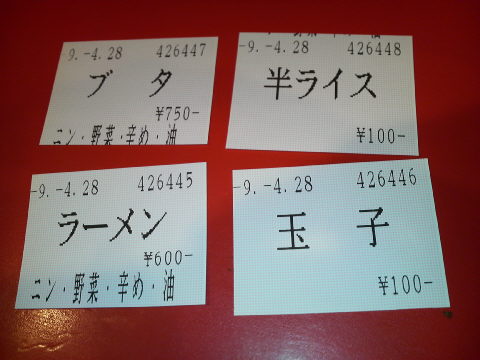 -9.-4.28 426447
ブタ
¥750-
ニン・野菜・辛め・油
-9.-4.28 426448
半ライス
¥100-
-9.-4.28 426445
ラーメン
¥600-
ニン・野菜・辛め・油
-9.-4.28 426446
玉子
¥100-